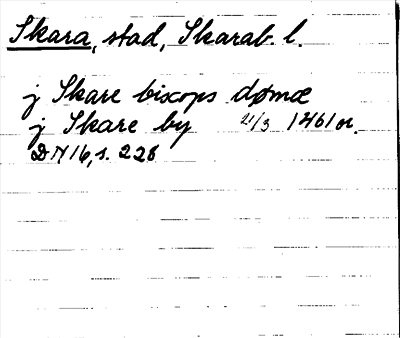 Skara, stad, Skarab. l.
j Skare biscops dømæ
j Skare by 21/3 1461 or.
DN 16, s. 228